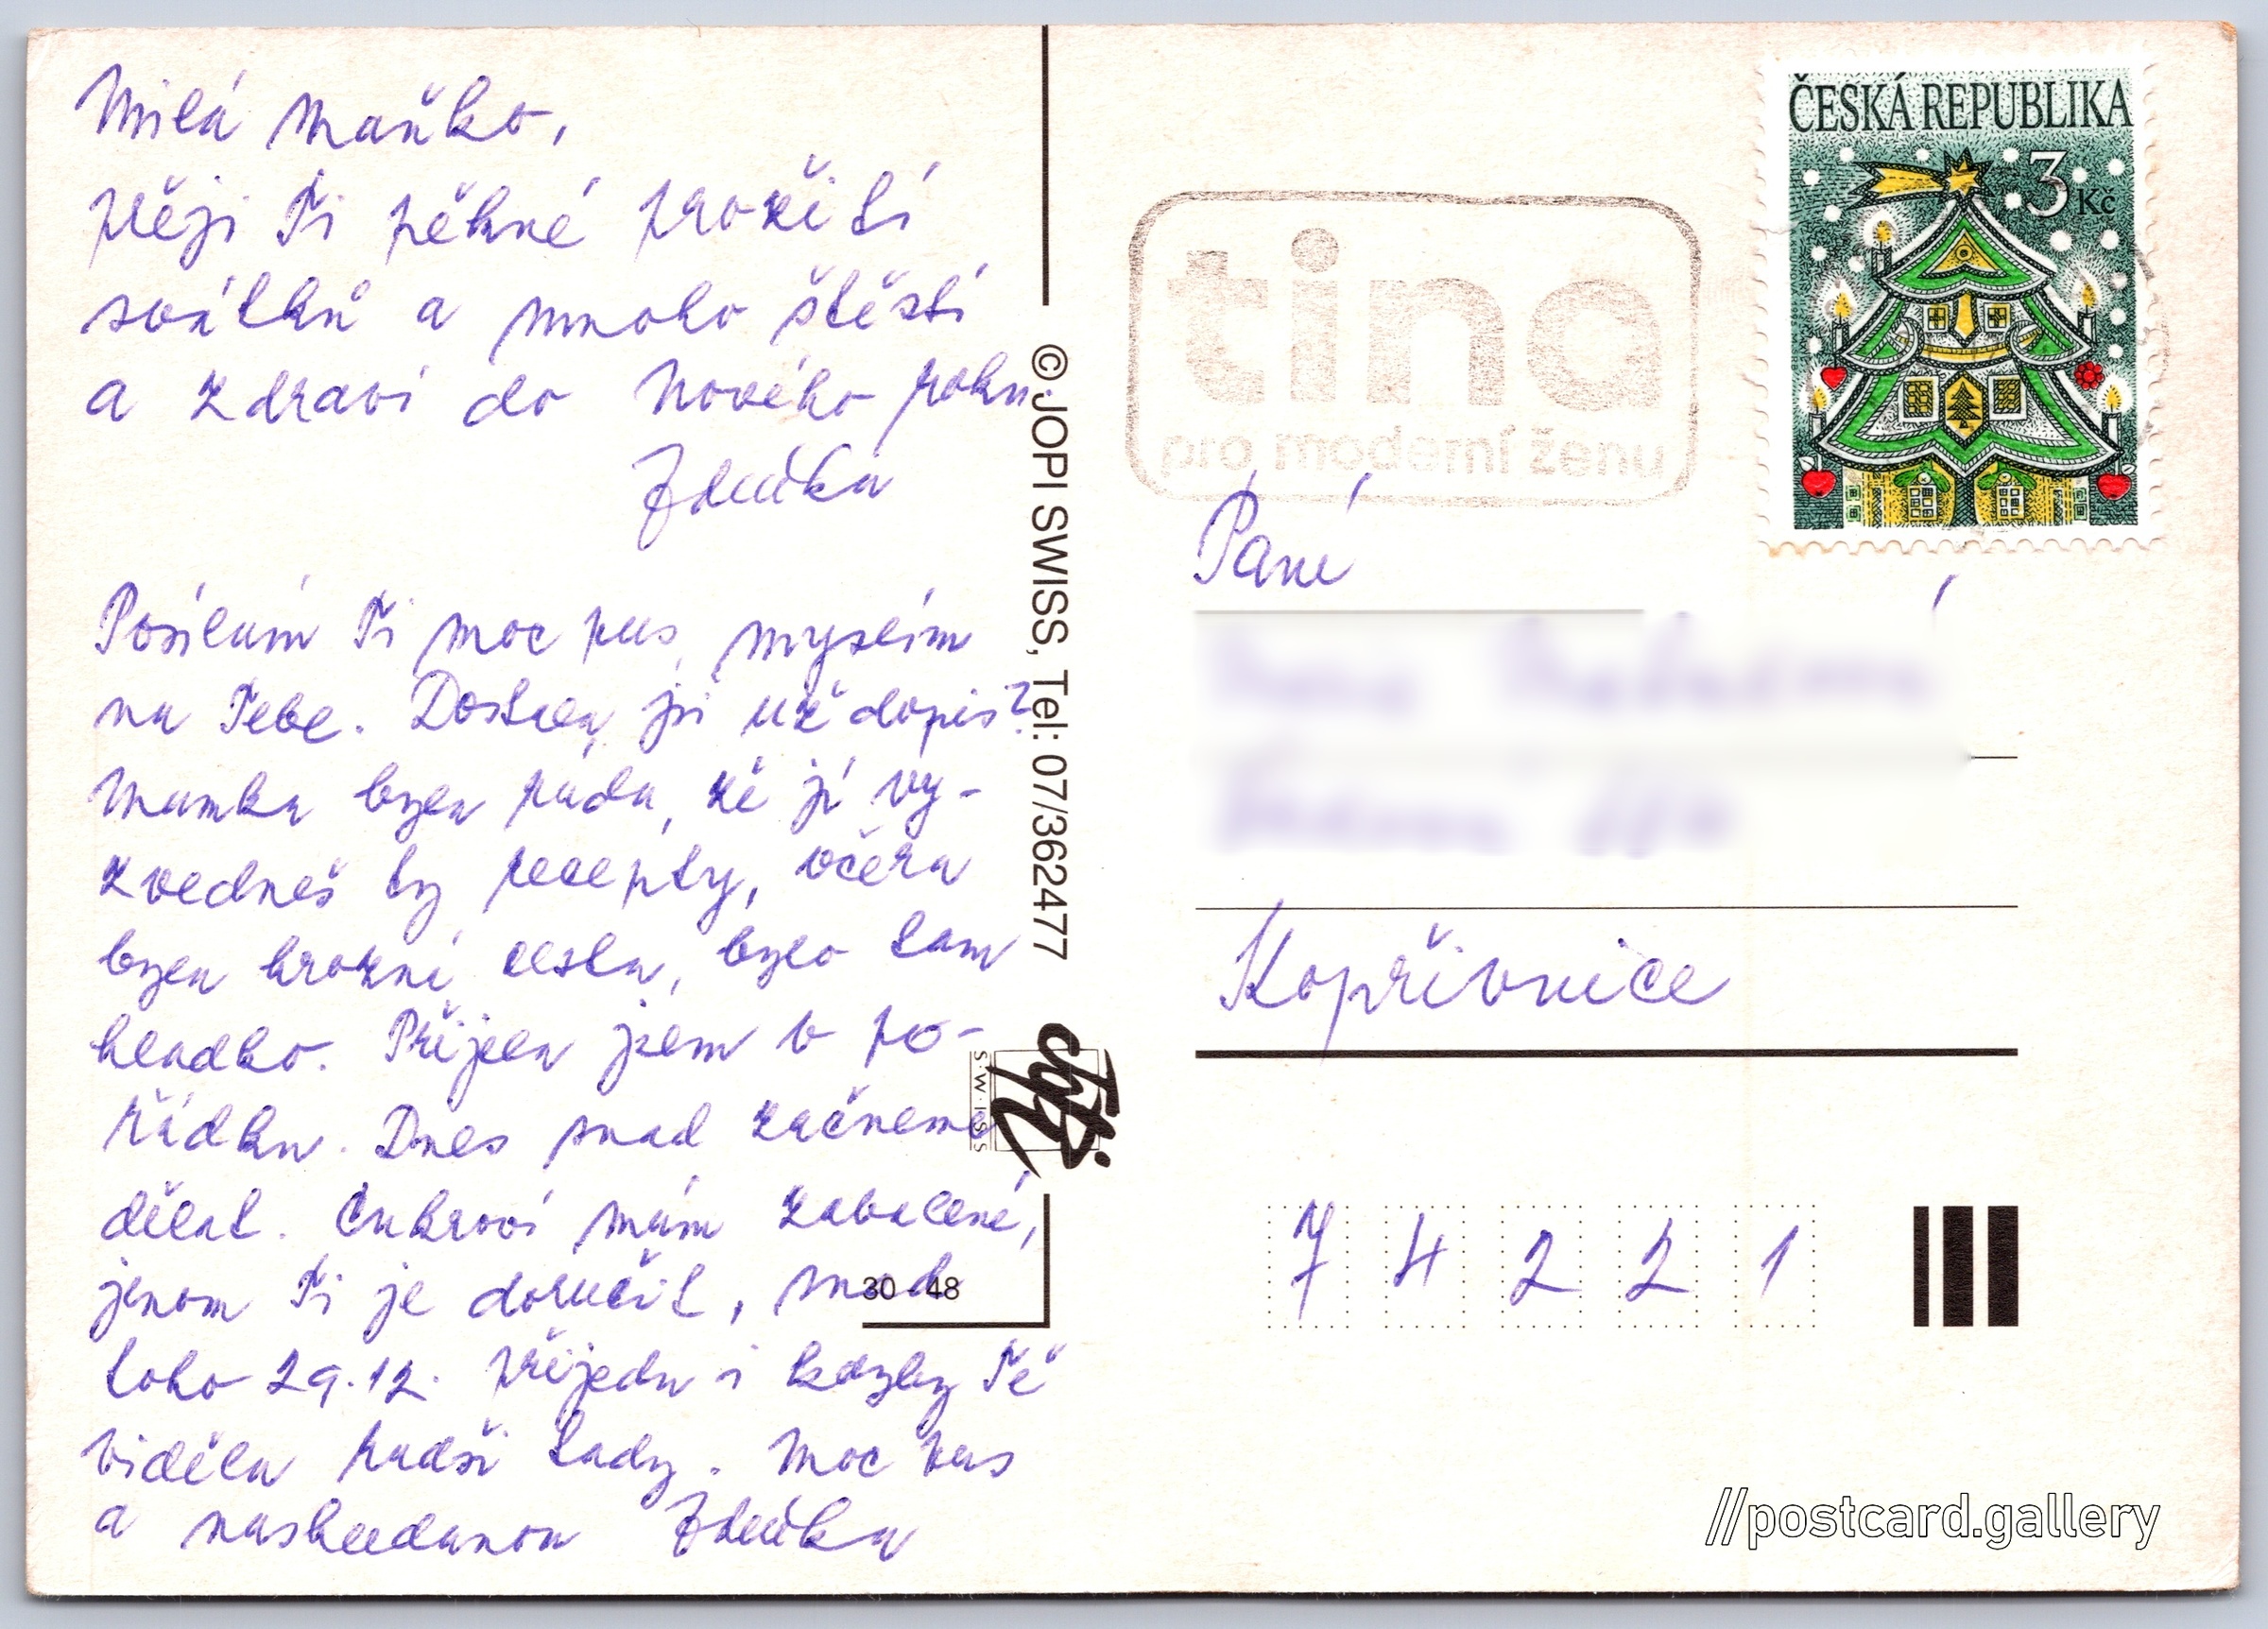 Milá Maňko,
přeji Ti pěkné prožití
svátků a mnoho štěstí
a zdraví do Nového roku.
Zdeňka
Posílám Ti moc pus, myslím
na Tebe. Dostala jsi už dopis?
Mamka byla ráda, že jí vy-
zvedneš ty recepty, včera
byla hrozná cesta, bylo tam
hladko. Přijela jsem v po-
řádku. Dnes snad začneme
dělat. Cukroví mám zabalené,
jenom Ti je doručit, snad
toho 29.12. přijedu i kdyby Tě
viděla radši tady. Moc pus
a nashledanou Zdeňka
© JOPI SWISS, Tel: 07/362477
Jopi
SWISS
30 - 48
ČESKÁ REPUBLIKA
3 Kč
tina
pro moderní ženu
Paní
Kopřivnice
7 4 2 2 1
//postcard.gallery